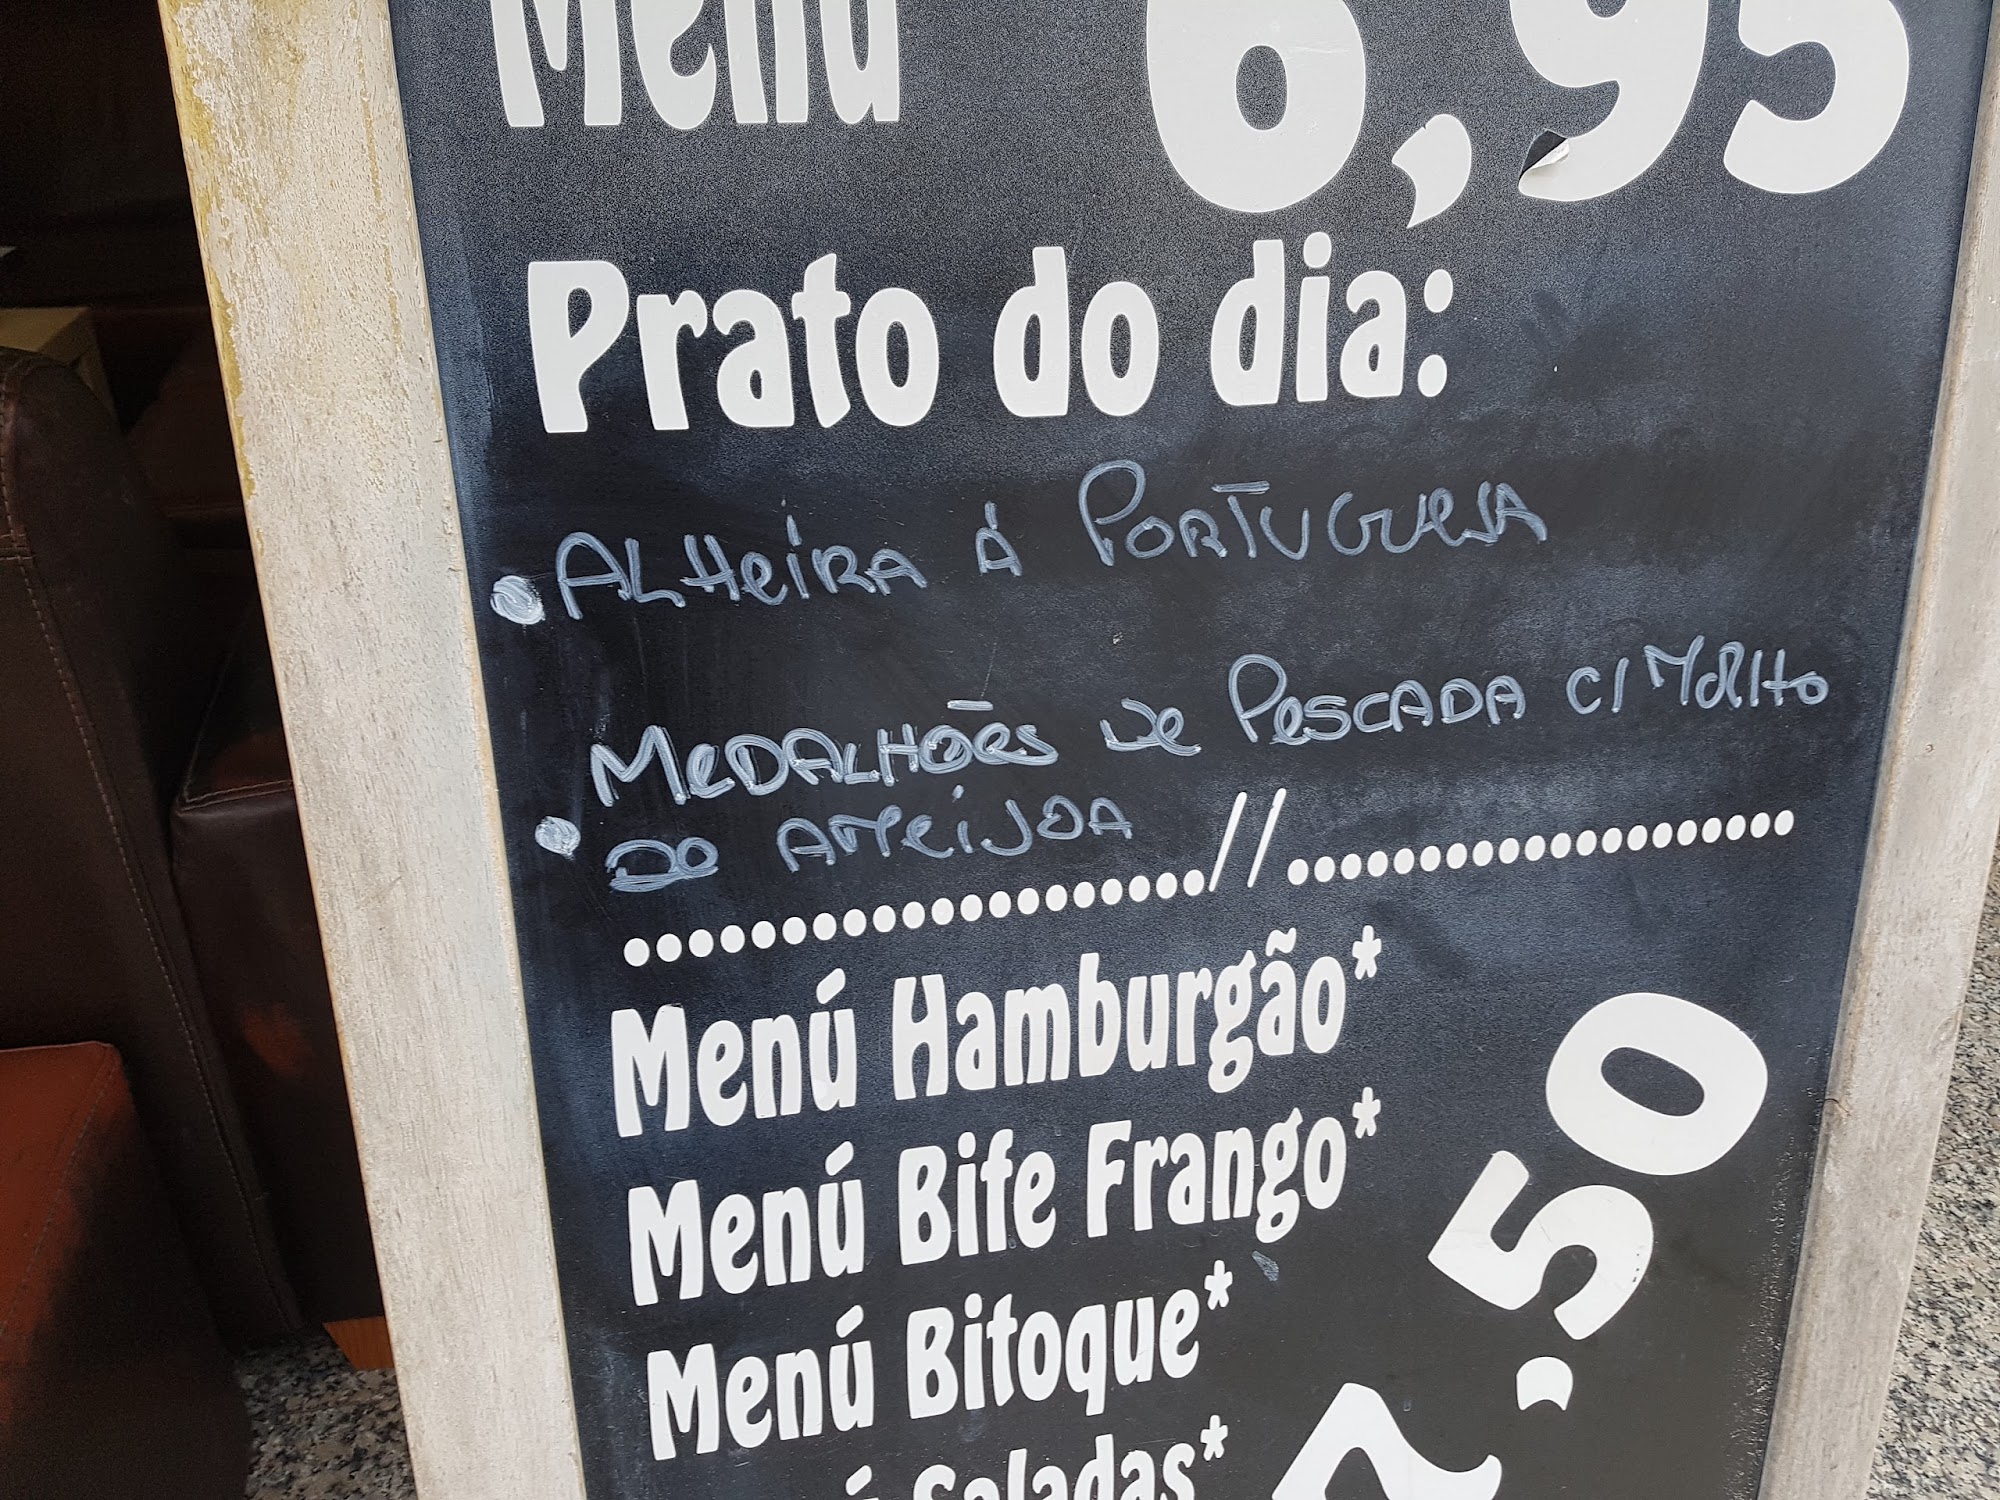 Menú 6,95
Prato do dia:
• ALHEIRA Á PORTUGUESA
MEDALHÕES DE PESCADA C/ MOLHO
• DO AMEIJOA
...................//....................
Menú Hamburgão*
Menú Bife Frango*
Menú Bitoque*
Menú Saladas*
7,50